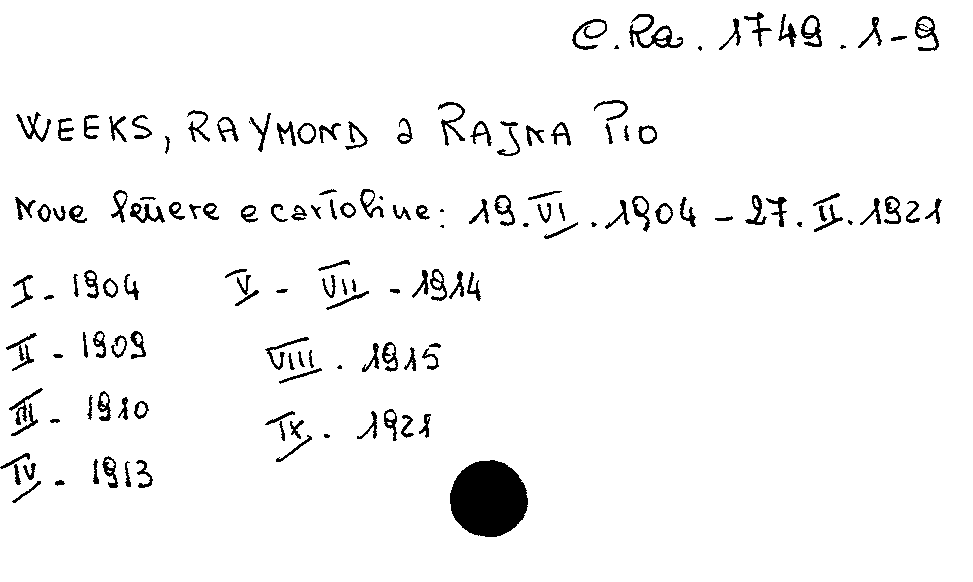 C.Ra. 1749. 1-9
WEEKS, RAYMOND a RAJNA PIO
Nove lettere e cartoline: 19.VI.1904 - 27.II.1921
I - 1904
II - 1909
III - 1910
IV - 1913
V - VII - 1914
VIII. 1915
IX. 1921